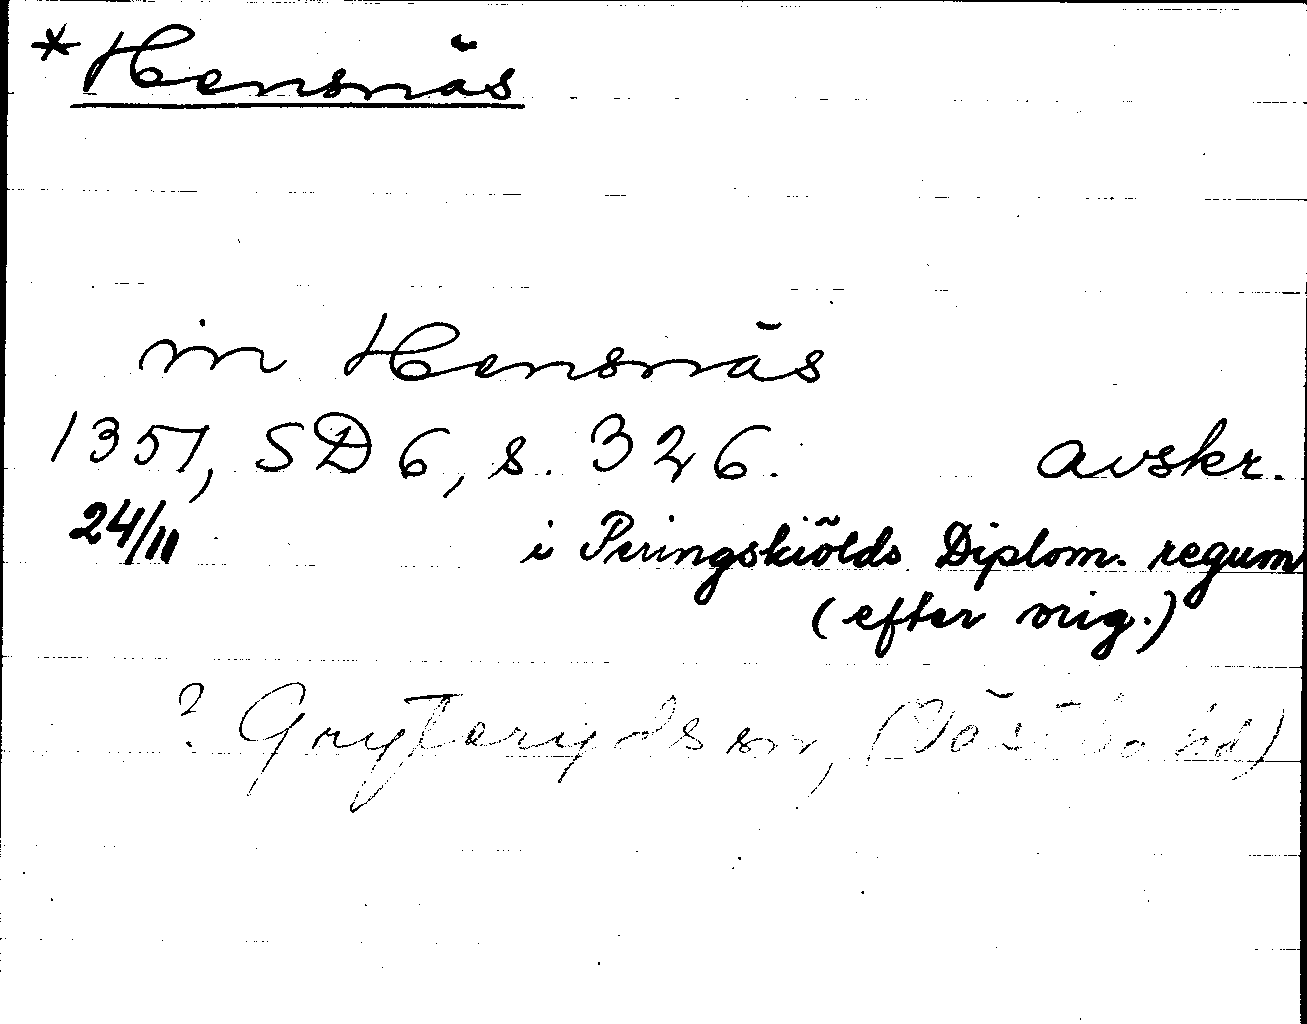 *Hensnäs
in Hensnäs
1351, SD 6, s. 326. avskr.
24/11 i Peringskiölds Diplom. regum
(efter orig.)
? Gryteryds sn, (Västbo hd)